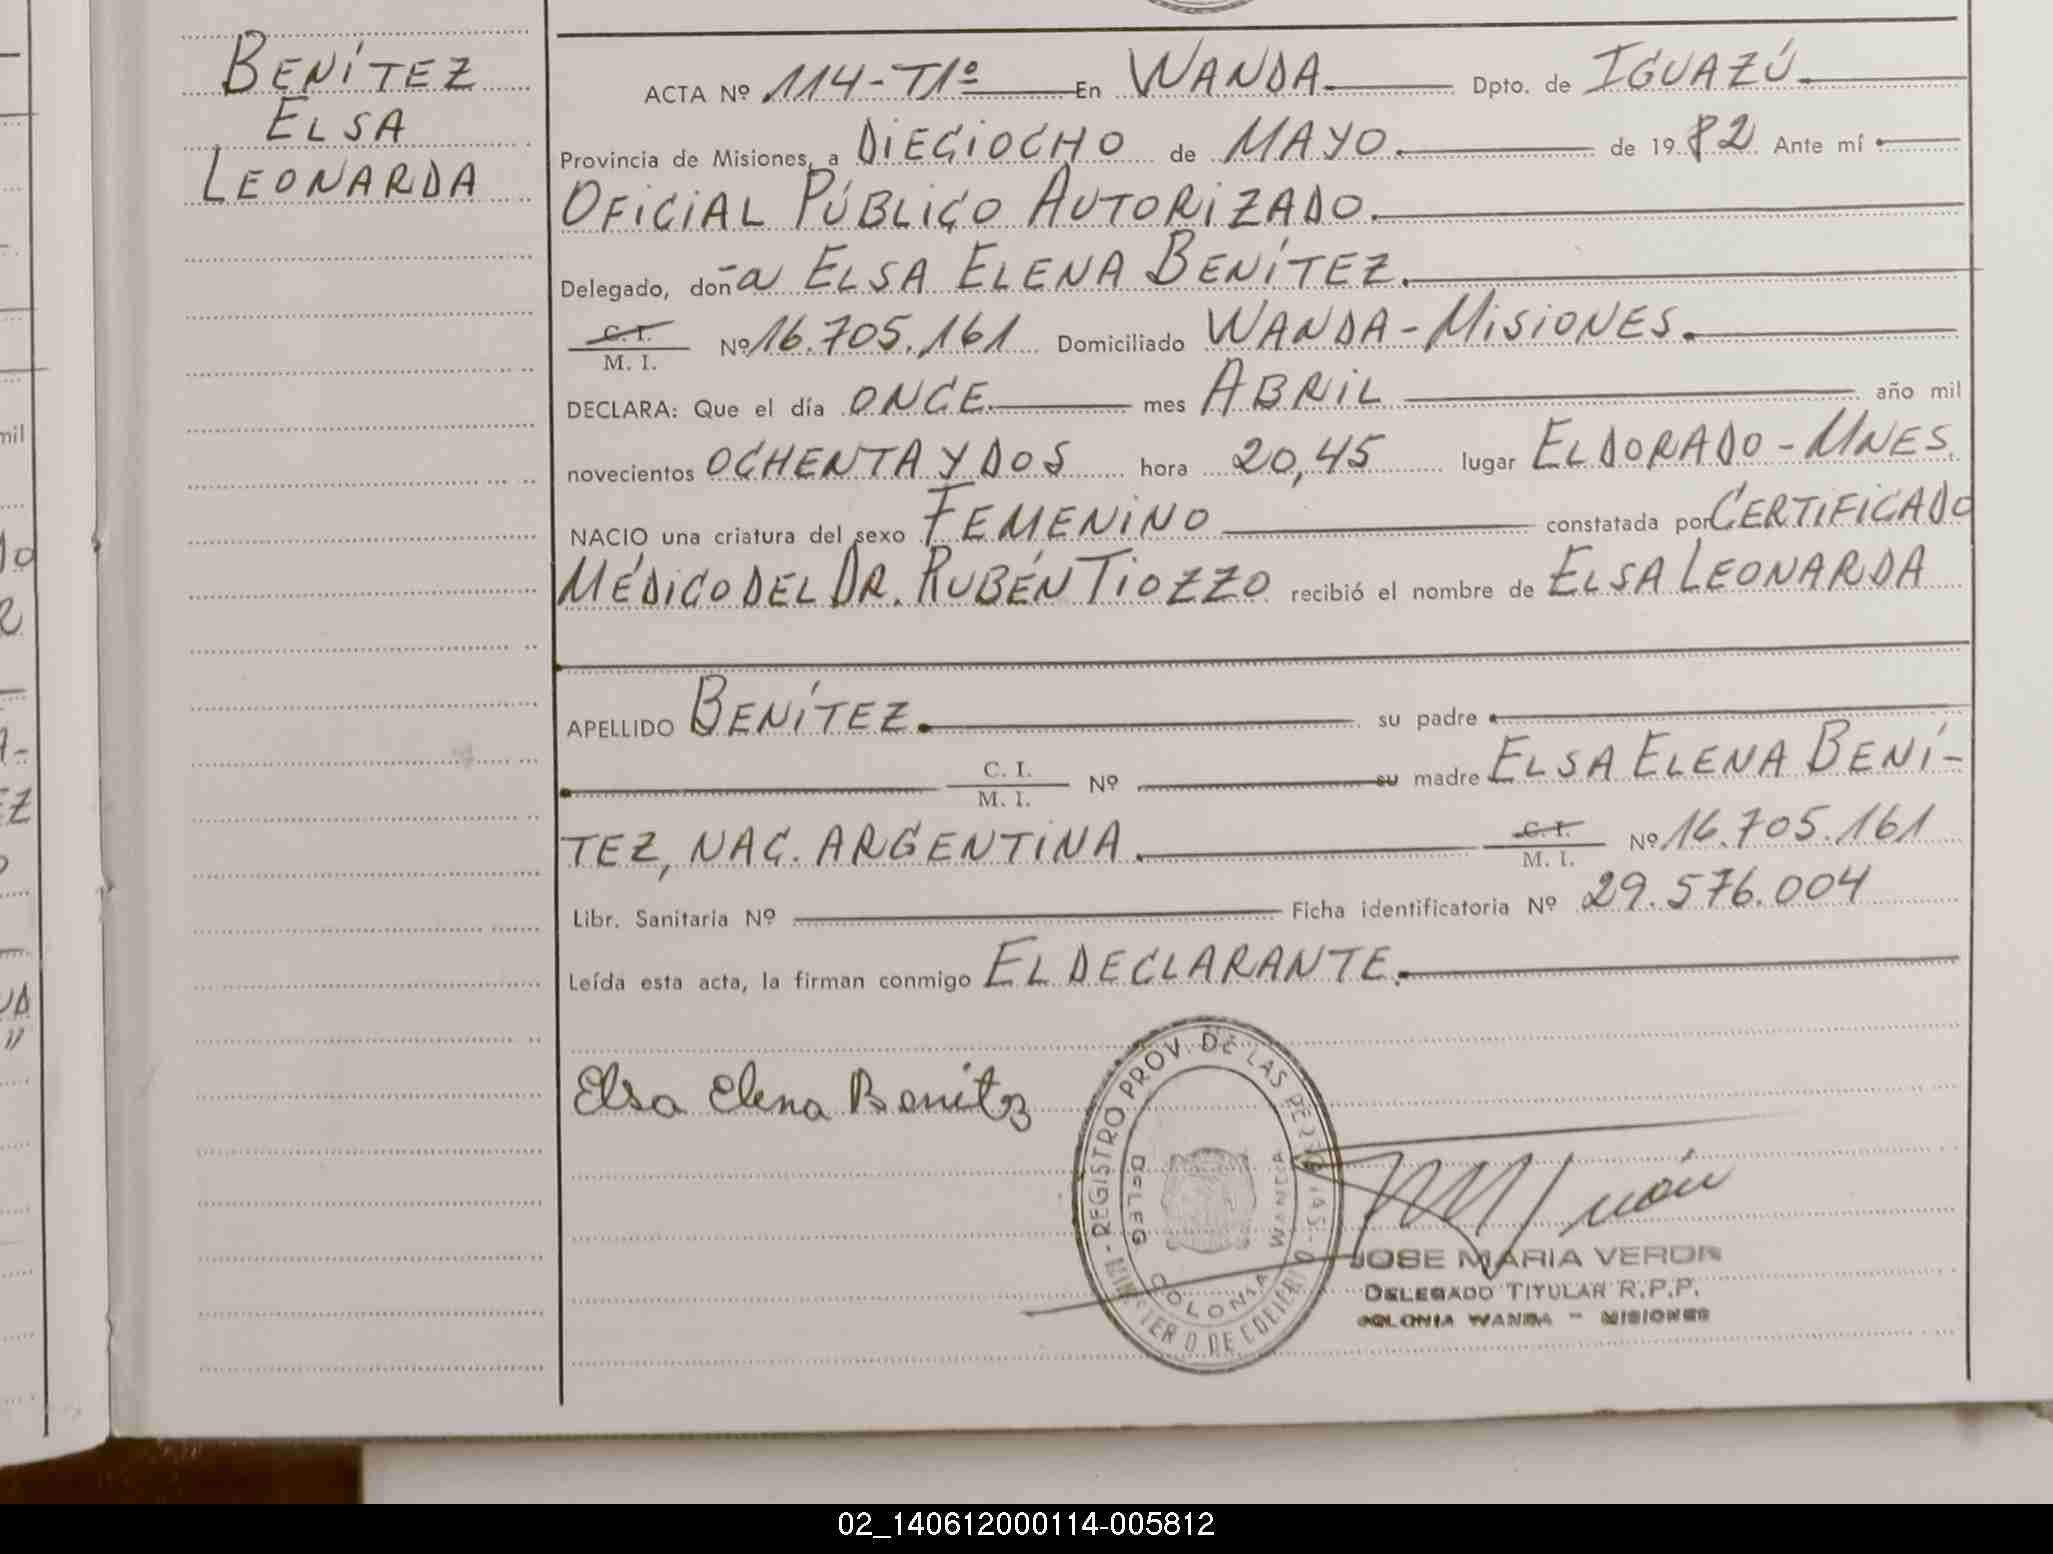 BENÍTEZ
ELSA
LEONARDA
ACTA Nº 114-T1º En WANDA Dpto. de IGUAZÚ
Provincia de Misiones, a DIECIOCHO de MAYO de 1982 Ante mí
OFICIAL PÚBLICO AUTORIZADO.
Delegado, doña ELSA ELENA BENÍTEZ.
C. I.
M. I. Nº 16.705.161 Domiciliado WANDA-MISIONES.
DECLARA: Que el día ONCE mes ABRIL año mil
novecientos OCHENTA Y DOS hora 20,45 lugar ELDORADO-MNES.
NACIO una criatura del sexo FEMENINO constatada por CERTIFICADO
MÉDICO DEL DR. RUBÉN TIOZZO recibió el nombre de ELSA LEONARDA
APELLIDO BENÍTEZ. su padre
C. I.
M. I. Nº su madre ELSA ELENA BENÍ-
TEZ, NAC. ARGENTINA. C. I.
M. I. Nº 16.705.161
Libr. Sanitaria Nº Ficha identificatoria Nº 29.576.004
Leída esta acta, la firman conmigo EL DECLARANTE.
Elsa Elena Benitez
REGISTRO PROV. DE LAS PERSONAS
DELEG. COLONIA WANDA
MINISTERIO DE GOBIERNO
JOSE MARIA VERON
DELEGADO TITULAR R.P.P.
COLONIA WANDA - MISIONES
02_140612000114-005812